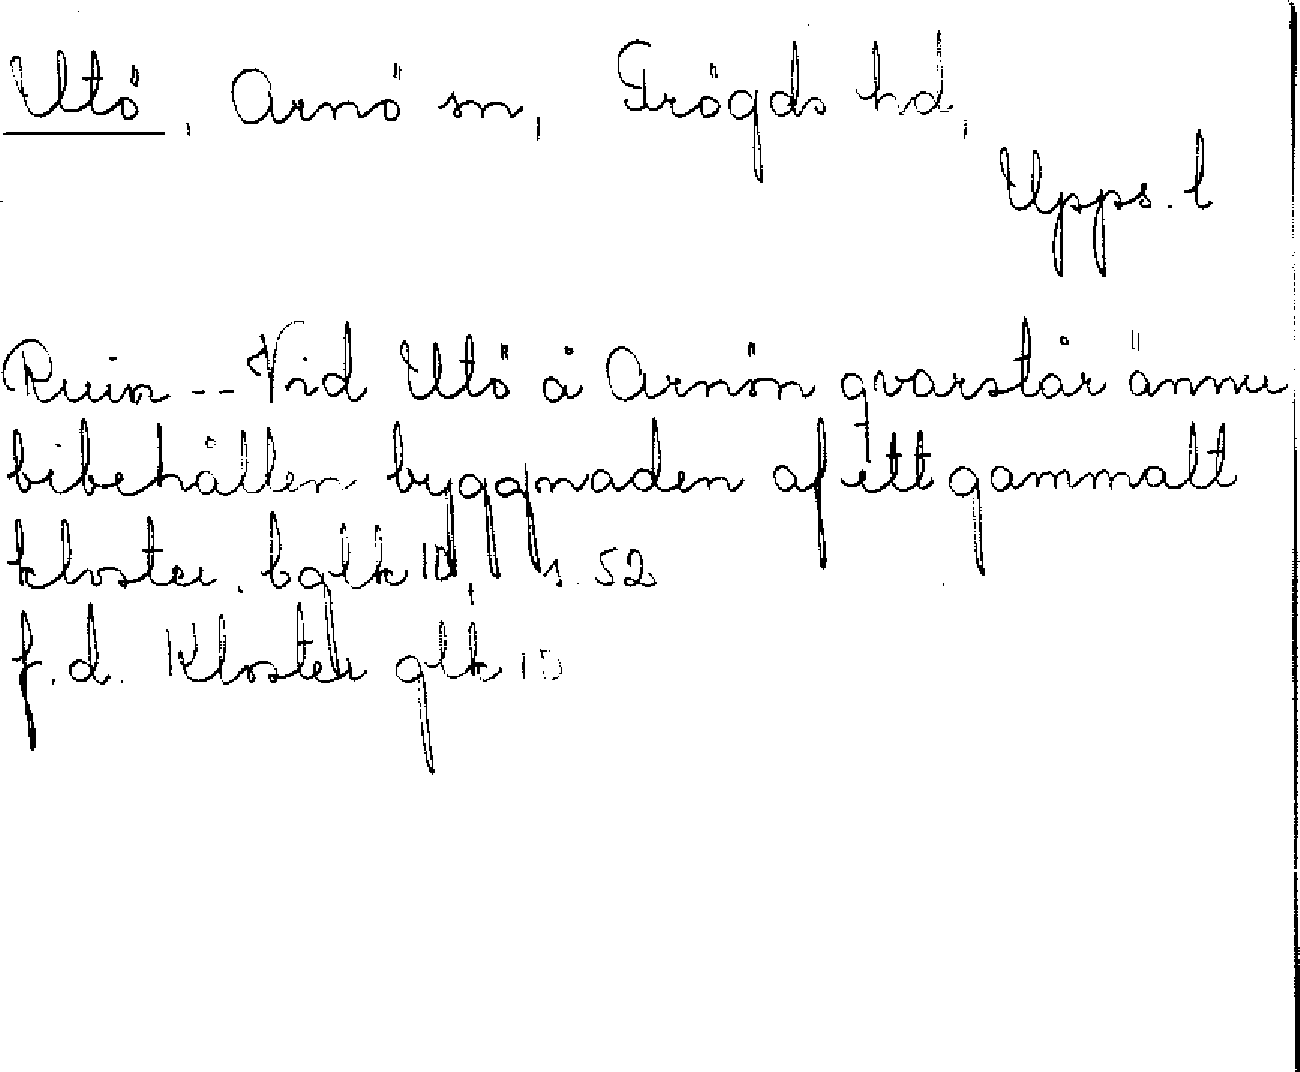 Utö, Arnö sn, Trögds hd,
Upps. l
Ruin -- Vid Utö å Arnön qvarstår ännu
bibehållen byggnaden af ett gammalt
kloster. bglk 10, s. 52
f.d. Kloster glk 10